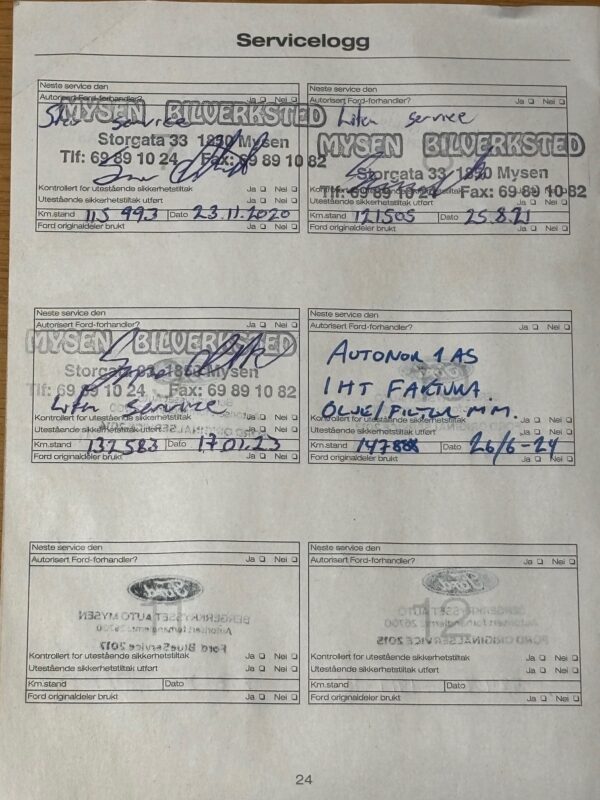 Servicelogg
Neste service den
Autorisert Ford-forhandler? Ja Nei
Stor service
MYSEN BILVERKSTED
Storgata 33 1850 Mysen
Tlf: 69 89 10 24 Fax: 69 89 10 82
Kontrollert for utestående sikkerhetstiltak Ja Nei
Utestående sikkerhetstiltak utført Ja Nei
Km.stand 115 993 Dato 23.11.2020
Ford originaldeler brukt Ja Nei
Neste service den
Autorisert Ford-forhandler? Ja Nei
Liten service
MYSEN BILVERKSTED
Storgata 33 1850 Mysen
Tlf: 69 89 10 24 Fax: 69 89 10 82
Kontrollert for utestående sikkerhetstiltak
Utestående sikkerhetstiltak utført Ja Nei
Km.stand 121505 Dato 25.8.21
Ford originaldeler brukt Ja Nei
Neste service den
Autorisert Ford-forhandler? Ja Nei
MYSEN BILVERKSTED
Storgata 33 1850 Mysen
Tlf: 69 89 10 24 Fax: 69 89 10 82
Liten service
Kontrollert for utestående sikkerhetstiltak Ja Nei
Utestående sikkerhetstiltak utført Ja Nei
Km.stand 137583 Dato 17.01.23
Ford originaldeler brukt Ja Nei
Neste service den
Autorisert Ford-forhandler? Ja Nei
AUTONOR 1 AS
IHT FAKTURA.
OLJE/FILTER M.M.
Kontrollert for utestående sikkerhetstiltak Ja Nei
Utestående sikkerhetstiltak utført Ja Nei
Km.stand Dato 26/6-24
Ford originaldeler brukt Ja Nei
Neste service den
Autorisert Ford-forhandler? Ja Nei
Kontrollert for utestående sikkerhetstiltak Ja Nei
Utestående sikkerhetstiltak utført Ja Nei
Km.stand Dato
Ford originaldeler brukt Ja Nei
Neste service den
Autorisert Ford-forhandler? Ja Nei
Kontrollert for utestående sikkerhetstiltak Ja Nei
Utestående sikkerhetstiltak utført Ja Nei
Km.stand Dato
Ford originaldeler brukt Ja Nei
24